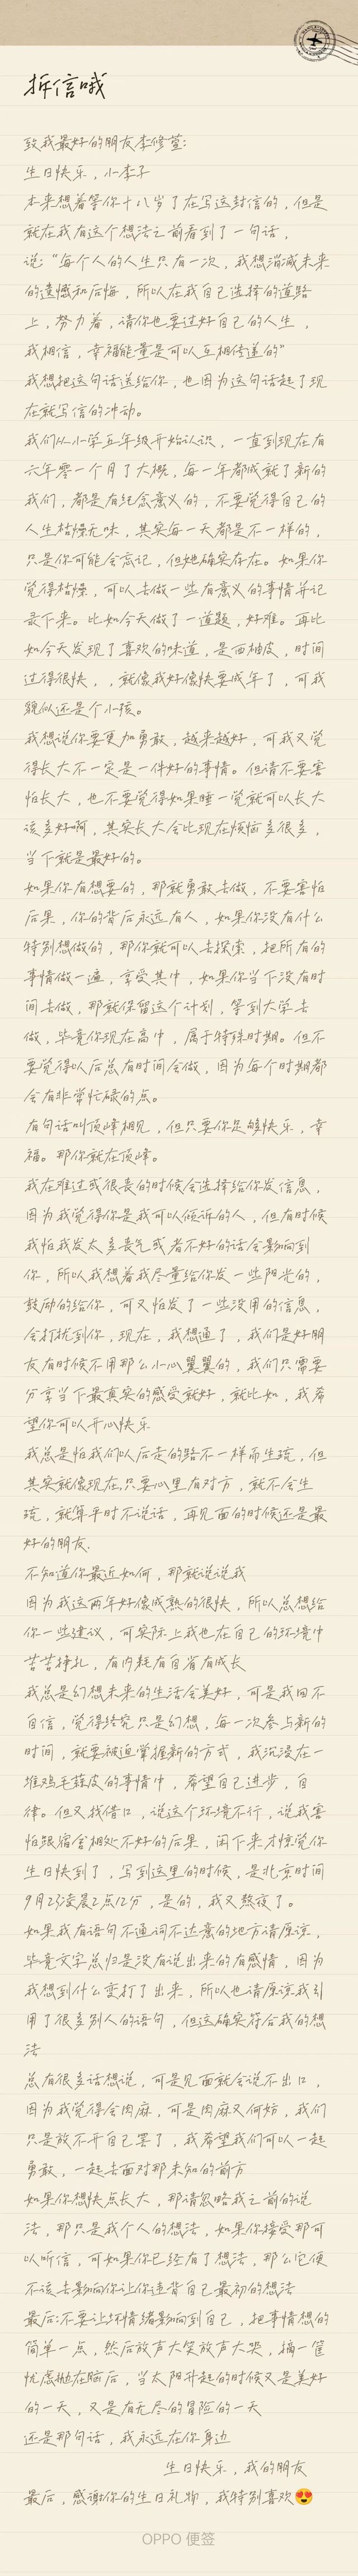 拆信哦
致我最好的朋友李修萱:
生日快乐，小李子
本来想着等你十八岁了在写这封信的，但是
就在我有这个想法之前看到了一句话，
说：“每个人的人生只有一次，我想消减未来
的遗憾和后悔，所以在我自己选择的道路
上，努力着，请你也要过好自己的人生，
我相信，幸福能量是可以互相传递的”
我想把这句话送给你，也因为这句话起了现
在就写信的冲动。
我们从小学五年级开始认识，一直到现在有
六年零一个月了大概，每一年都成就了新的
我们，都是有纪念意义的，不要觉得自己的
人生枯燥无味，其实每一天都是不一样的，
只是你可能会忘记，但她确实存在。如果你
觉得枯燥，可以去做一些有意义的事情并记
录下来。比如今天做了一道题，好难。再比
如今天发现了喜欢的味道，是西柚皮，时间
过得很快，，就像我好像快要成年了，可我
貌似还是个小孩。
我想说你要更加勇敢，越来越好，可我又觉
得长大不一定是一件好的事情。但请不要害
怕长大，也不要觉得如果睡一觉就可以长大
该多好啊，其实长大会比现在烦恼多很多，
当下就是最好的。
如果你有想要的，那就勇敢去做，不要害怕
后果，你的背后永远有人，如果你没有什么
特别想做的，那你就可以去探索，把所有的
事情做一遍，享受其中，如果你当下没有时
间去做，那就保留这个计划，等到大学去
做，毕竟你现在高中，属于特殊时期。但不
要觉得以后总有时间会做，因为每个时期都
会有非常忙碌的点。
有句话叫顶峰相见，但只要你足够快乐，幸
福。那你就在顶峰。
我在难过或很丧的时候会选择给你发信息，
因为我觉得你是我可以倾诉的人，但有时候
我怕我发太多丧气或者不好的话会影响到
你，所以我想着我尽量给你发一些阳光的，
鼓励的给你，可又怕发了一些没用的信息，
会打扰到你，现在，我想通了，我们是好朋
友有时候不用那么小心翼翼的，我们只需要
分享当下最真实的感受就好，就比如，我希
望你可以开心快乐
我总是怕我们以后走的路不一样而生疏，但
其实就像现在,只要心里有对方，就不会生
疏，就算平时不说话，再见面的时候还是最
好的朋友.
不知道你最近如何，那就说说我
因为我这两年好像成熟的很快，所以总想给
你一些建议，可实际上我也在自己的环境中
苦苦挣扎，有内耗有自省有成长
我总是幻想未来的生活会美好，可是我回不
自信，觉得终究只是幻想，每一次参与新的
时间，就要被迫掌握新的方式，我沉浸在一
堆鸡毛蒜皮的事情中，希望自己进步，自
律。但又找借口，说这个环境不行，说我害
怕跟宿舍相处不好的后果，闲下来才惊觉你
生日快到了，写到这里的时候，是北京时间
9月23凌晨2点12分，是的，我又熬夜了。
如果我有语句不通词不达意的地方请原谅，
毕竟文字总归是没有说出来的有感情，因为
我想到什么变打了出来，所以也请原谅我引
用了很多别人的语句，但这确实符合我的想
法
总有很多话想说，可是见面就会说不出口，
因为我觉得会肉麻，可是肉麻又何妨，我们
只是放不开自己罢了，我希望我们可以一起
勇敢，一起去面对那未知的前方
如果你想快点长大，那请忽略我之前的说
法，那只是我个人的想法，如果你接受那可
以听信，可如果你已经有了想法，那么它便
不该去影响你让你违背自己最初的想法
最后:不要让坏情绪影响到自己，把事情想的
简单一点，然后放声大笑放声大哭，摘一筐
忧虑抛在脑后，当太阳升起的时候又是美好
的一天，又是有无尽的冒险的一天
还是那句话，我永远在你身边
生日快乐，我的朋友
最后，感谢你的生日礼物，我特别喜欢😍
OPPO 便签